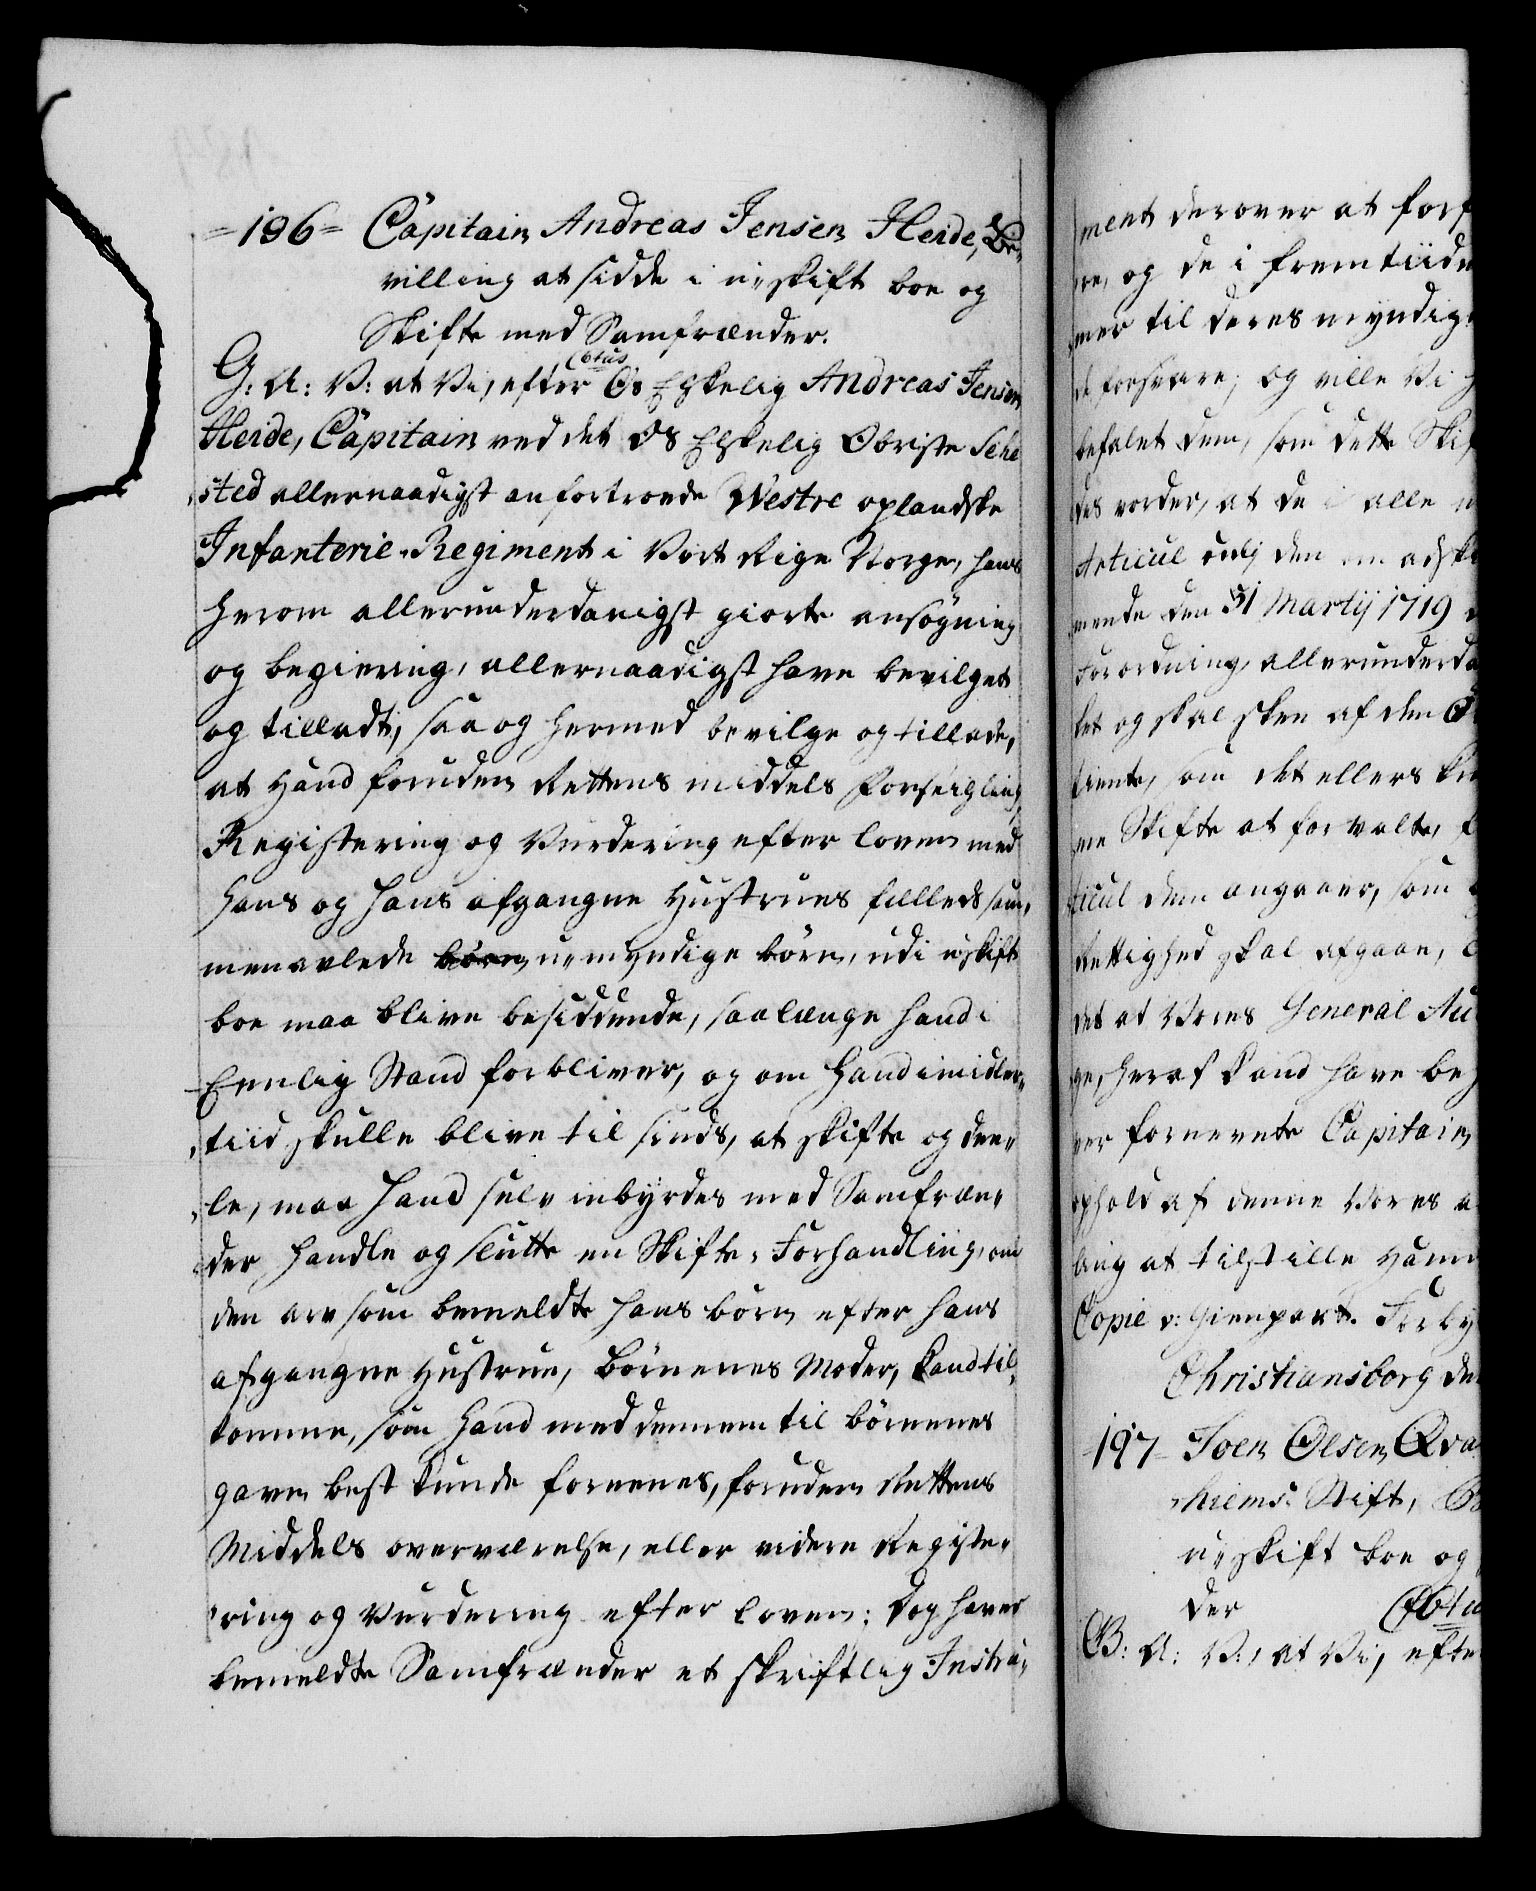 =196= Capitain Andreas Jensen Heide, Be-
villing at sidde i u-skift boe og
Skifte med Samfrænder.
G: A: V: at Vi, efter Os Elskelig Andreas Jensen
Heide, Capitain ved det Os Elskelig Obriste Sehe
sted allernaadigst anfortroede Westre oplandske
Infanterie-Regiment i Vort Rige Norge, hans
herom allerunderdanigst giorte ansøgning
og begiering, allernaadigst have bevilget
og tilladt, saa og hermed bevilge og tillade,
at Hand foruden Rettens middels Forseigling
Registering og Vurdering efter loven med
hans og hans afgangne Hustrues fælleds sam-
menavlede børn u-myndige børn, udi uskift
boe maa blive besiddende, saalænge hand i
Eenlig Stand forbliver, og om Hand imidler-
tiid skulle blive til sinds, at skifte og dee-
le, maa Hand selv inbyrdes med Samfræn-
der handle og slutte en Skifte-Forhandling, om
den arv som bemeldte hans børn efter hans
afgangne Hustrue, Børnenes Moder, kand til-
komme, som Hand med dennem til børnenes
gavn best kunde foreenes, foruden Rettens
Middels overværelse, eller videre Registe-
ring og Vurdering efter loven; Dog haver
bemeldte Samfrænder et skriftlig Instru-
ment derover at forf
re, og de i fremtiide
mer til deres myndig
at forsvare; og ville Vi h
befalet dem, som dette Skif
des vorder, at de i alle m
Articul udj den om adsk
mende den 31 Martij 1719
Forordning, allerunderda
tet og skal skee af den
tiente, om det ellers ku
me Skifte at forvalte, f
ticul dem angaaer, som
Rettighed skal afgaae,
det at Vores General Au
ge, heraf kand have beh
ver fornevnte Capitain
ophold af denne Vores a
ling at tilstille Vann
Copie v: Gienpart. Forby
Christiansborg de
197- Joen Olsen Qva
hiems: Stift, B
u-skift boe og
der
B: A: V:, at Vi, efte